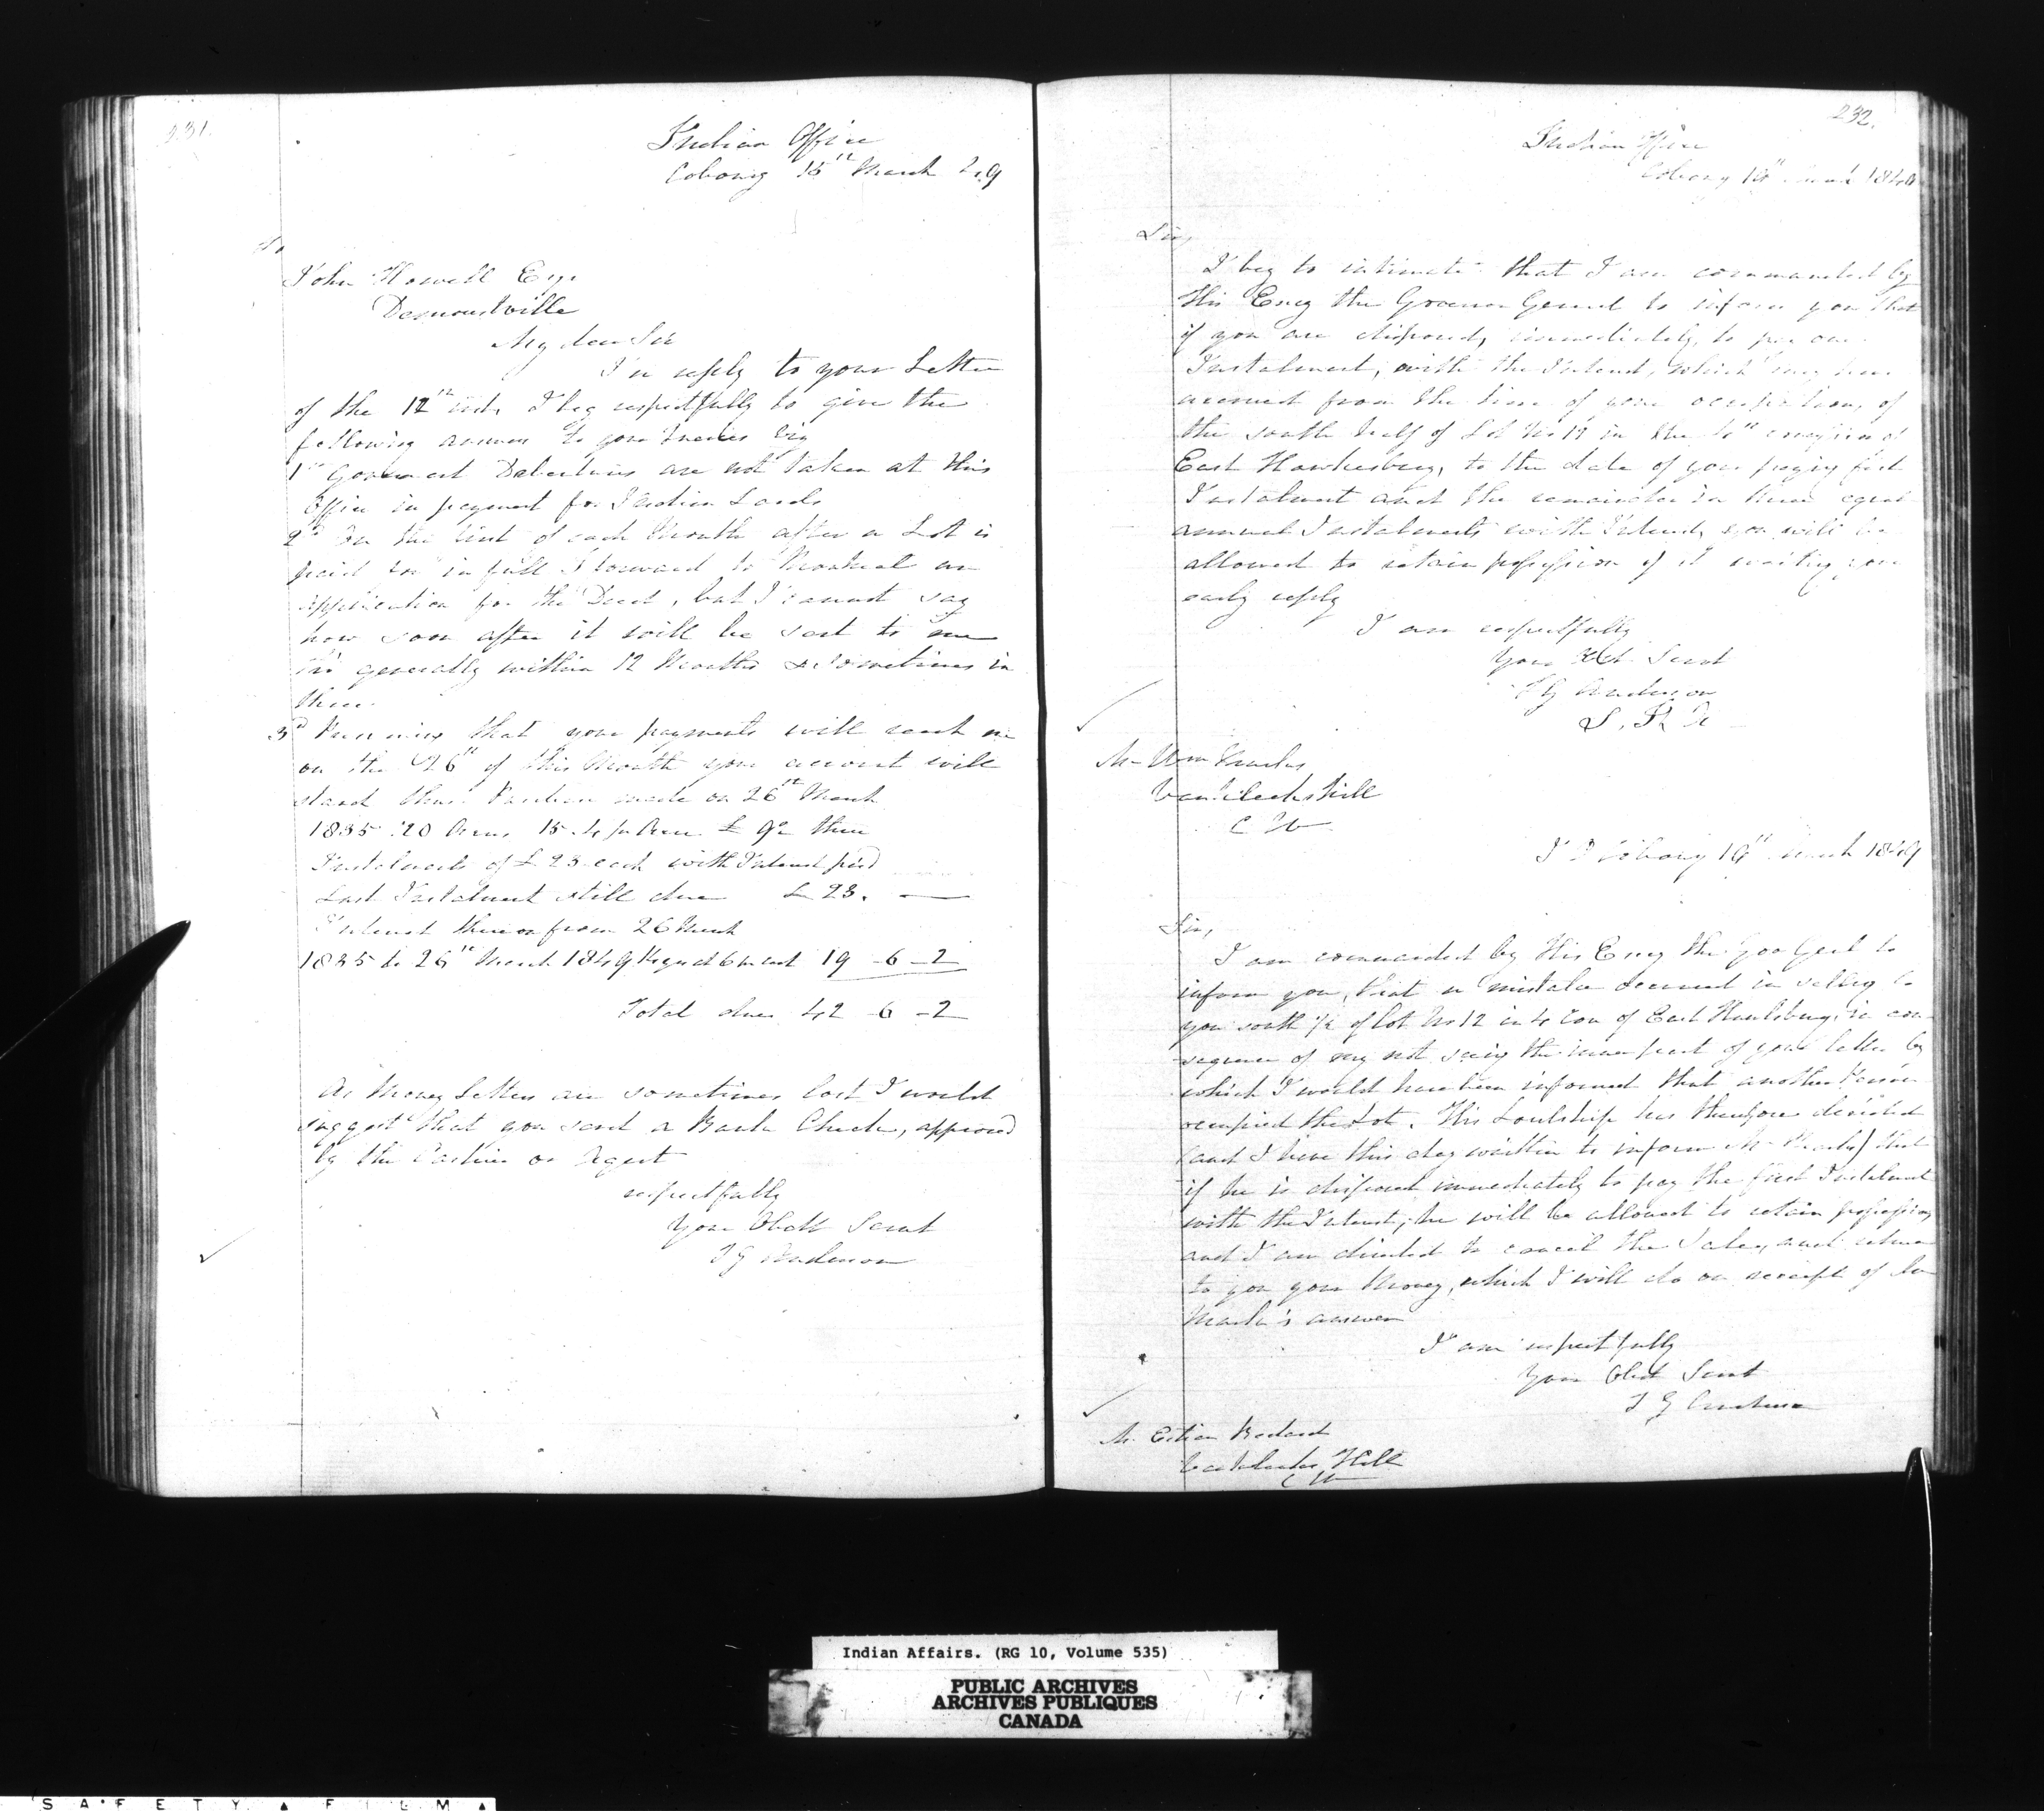 231.
Indian Office
Cobourg 15th March 49
John Howell Esqr
Demorestville
My dear Sir
In reply to your Letter
of the 12th inst. I beg respectfully to give the
following answers to your queries viz
1st Government Debentures are not taken at this
Office in payment for Indian Lands
2d In the first of each Month after a Lot is
paid for in full I forward to Montreal an
application for the Deed, but I cannot say
how soon after it will be sent to me
tho' generally within 12 Months & sometimes in
three.
3d Presuming that your payments will reach me
on the 26th of this Month your account will
stand thus. Purchase made on 26th March
1835 120 Acres 15.4 pr Acre £ 92 three
Instalments of £23 each with Interest paid
Last Instalment still due £ 23. —
Interest thereon from 26 March
1835 to 26th March 1849 14 years at 6 pr cent 19 - 6 - 2
Total due 42 - 6 - 2
As Money Letters are sometimes lost I would
suggest that you send a Bank Check, approved
by the Cashier or Agent
respectfully
Your Obdt Servt
T G Anderson
232.
Indian Office
Cobourg March 1849
Sir,
I beg to intimate that I am commanded by
His Excy the Governor General to inform you that
if you are disposed, immediately, to pay one
Instalment, with the Interest, which may have
accrued from the time of your occupation, of
the south half of Lot No 12 in the 4th concession of
East Hawkesbury, to the date of your paying first
Instalment and the remainder in three equal
annual Instalments with Interest, you will be
allowed to retain possession of it waiting your
early reply
I am respectfully
Your Obt Servt
T G Anderson
S. I. A
Mr Wm
Vankleek Hill
C W
I O Cobourg 19th March 1849
Sir,
I am commanded by His Excy the Gov Genl to
inform you, that a mistake occurred in selling to
you south ½ of lot No 12 in 4 Con of East Hawkesbury, in con-
sequence of my not seeing the inner part of your letter by
which I would have been informed that another Person
occupied the Lot. His Lordship has therefore decided
(and I have this day written to inform Mr ) that
if he is disposed immediately to pay the first Instalment
with the Interest, he will be allowed to retain possession,
and I am directed to cancel the Sale, and return
to you your Money, which I will do on receipt of
answer
I am respectfully
Your Obdt Servt
T G Anderson
Mr
Vankleek Hill
C W
Indian Affairs. (RG 10, Volume 535)
PUBLIC ARCHIVES
ARCHIVES PUBLIQUES
CANADA
SAFETY ▲ FILM ▲